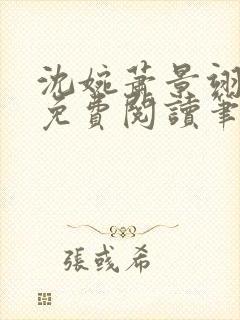 沈婉蕭景翊
免費閱讀筆
張彧希